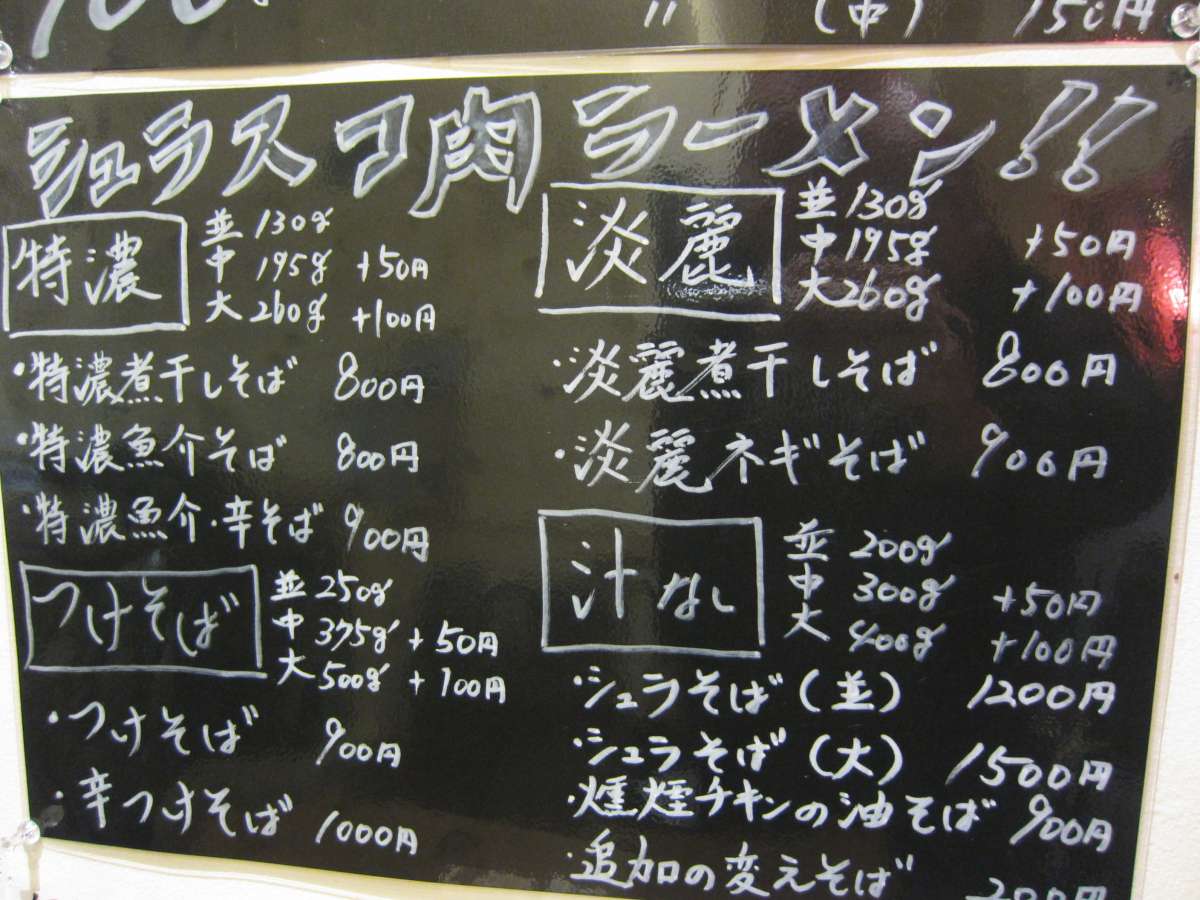 〃 (中) 150円
シュラスコ肉ラーメン!!
特濃
並 130g
中 195g +50円
大 260g +100円
・特濃煮干しそば 800円
・特濃魚介そば 800円
・特濃魚介・辛そば 900円
つけそば
並 250g
中 375g +50円
大 500g +100円
・つけそば 900円
・辛つけそば 1000円
淡麗
並 130g
中 195g +50円
大 260g +100円
・淡麗煮干しそば 800円
・淡麗ネギそば 900円
汁なし
並 200g
中 300g +50円
大 400g +100円
・シュラそば(並) 1200円
・シュラそば(大) 1500円
・燻煙チキンの油そば 900円
・追加の変えそば 200円